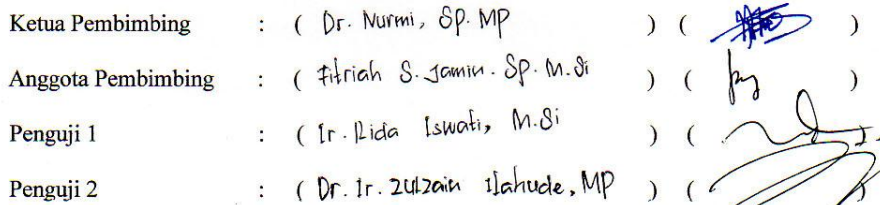 Ketua Pembimbing : ( Dr. Nurmi, SP. MP ) ( )
Anggota Pembimbing : ( Fitriah S. Jamin. SP. M.Si ) ( )
Penguji 1 : ( Ir. Rida Iswati, M.Si ) ( )
Penguji 2 : ( Dr. Ir. Zulzain Ilahude, MP ) ( )